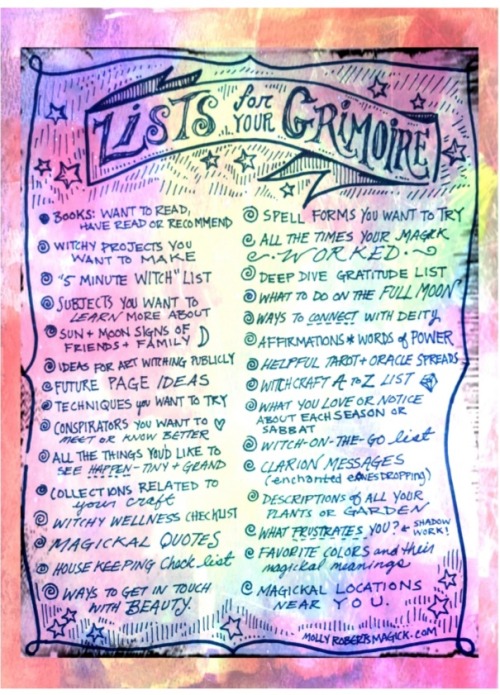 LISTS for YOUR GRIMOIRE
BOOKS: WANT TO READ,
HAVE READ OR RECOMMEND
WITCHY PROJECTS YOU
WANT TO MAKE
"5 MINUTE WITCH" LIST
SUBJECTS YOU WANT TO
LEARN MORE ABOUT
SUN + MOON SIGNS OF
FRIENDS + FAMILY
IDEAS FOR ART WITCHING PUBLICLY
FUTURE PAGE IDEAS
TECHNIQUES you WANT TO TRY
CONSPIRATORS YOU WANT TO
MEET OR KNOW BETTER
ALL THE THINGS YOU'D LIKE TO
SEE HAPPEN - TINY + GRAND
COLLECTIONS RELATED TO
your craft
WITCHY WELLNESS CHECKLIST
MAGICKAL QUOTES
HOUSE KEEPING check list
WAYS TO GET IN TOUCH
WITH BEAUTY.
SPELL FORMS YOU WANT TO TRY
ALL THE TIMES YOUR MAGICK
WORKED.
DEEP DIVE GRATITUDE LIST
WHAT TO DO ON THE FULL MOON
WAYS TO CONNECT WITH DEITY
AFFIRMATIONS * WORDS of POWER
HELPFUL TAROT + ORACLE SPREADS
WITCHCRAFT A to Z LIST
WHAT YOU LOVE OR NOTICE
ABOUT EACH SEASON OR
SABBAT
WITCH-ON-THE-GO list
CLARION MESSAGES
(enchanted EAVESDROPPING)
DESCRIPTIONS of ALL YOUR
PLANTS OR GARDEN
WHAT FRUSTRATES YOU? * SHADOW
WORK!
FAVORITE COLORS and their
magickal meanings
MAGICKAL LOCATIONS
NEAR YOU.
MOLLYROBERTSMAGICK.COM